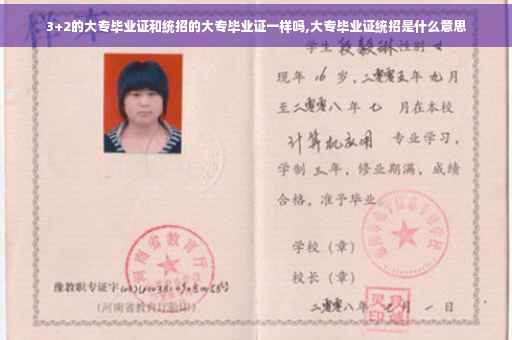 3+2的大专毕业证和统招的大专毕业证一样吗,大专毕业证统招是什么意思
学生 段毅琳 性别 女
现年 16 岁,二零零五年 九月
至二零零八年 七 月在本校
计算机应用 专业学习,
学制 三年,修业期满,成绩
合格,准予毕业
学校(章)
校长(章)
河南省教育厅
豫教职专证字
(河南省教育厅验印)
二零零八年 七月 一日